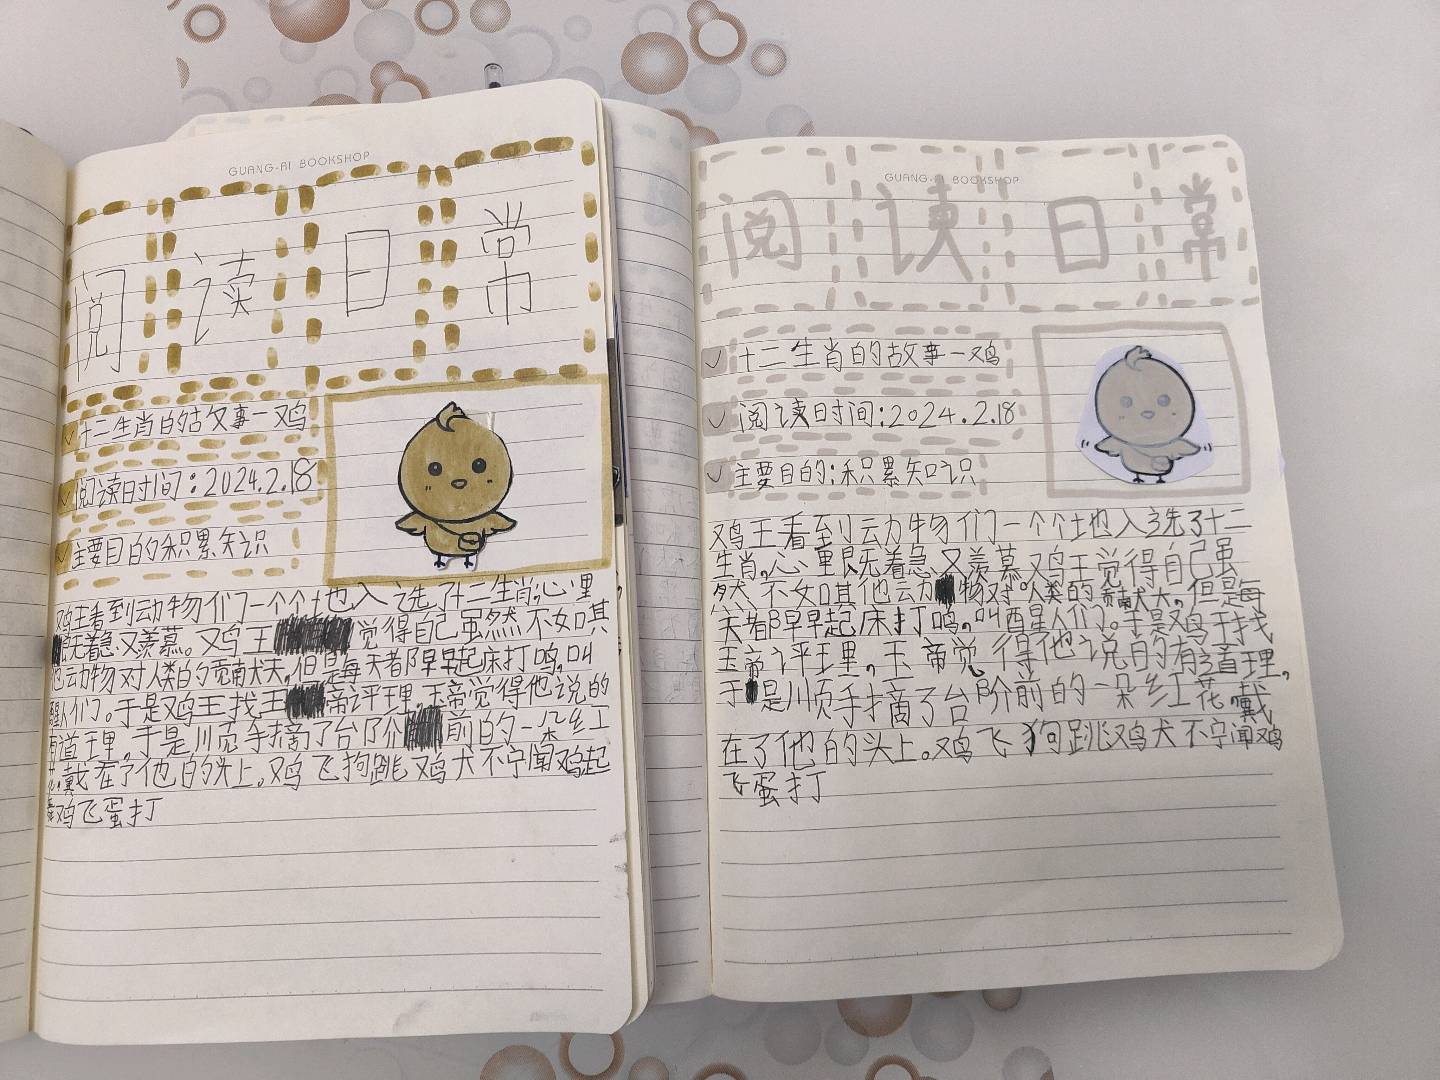 GUANG-AI BOOKSHOP
阅读日常
十二生肖的故事一鸡
阅读日时间:2024.2.18
主要目的积累知识
鸡王看到动物们一个个地入选了十二生肖,心里
既着急又羡慕。又鸡王觉得自己虽然不如其
他动物对人类的贡献大,但是每天都早早起床打鸣,叫
醒人们。于是鸡王找王帝评理,玉帝觉得他说的
有道理,于是顺手摘了台阶前的一朵红
花,戴在了他的头上。鸡飞狗跳鸡犬不宁闻鸡起
舞鸡飞蛋打
GUANG-AI BOOKSHOP
阅读日常
十二生肖的故事一鸡
阅读日时间:2024.2.18
主要目的:积累知识
鸡王看到动物们一个个地入选了十二
生肖,心里既着急又羡慕鸡王觉得自己虽
然不如其他动物对人类的贡献大,但是每
天都早早起床打鸣,叫醒人们。于是鸡王找
玉帝评理,玉帝觉得他说的有道理,
于是顺手摘了台阶前的一朵红花,戴
在了他的头上。鸡飞狗跳鸡犬不宁闻鸡
飞蛋打